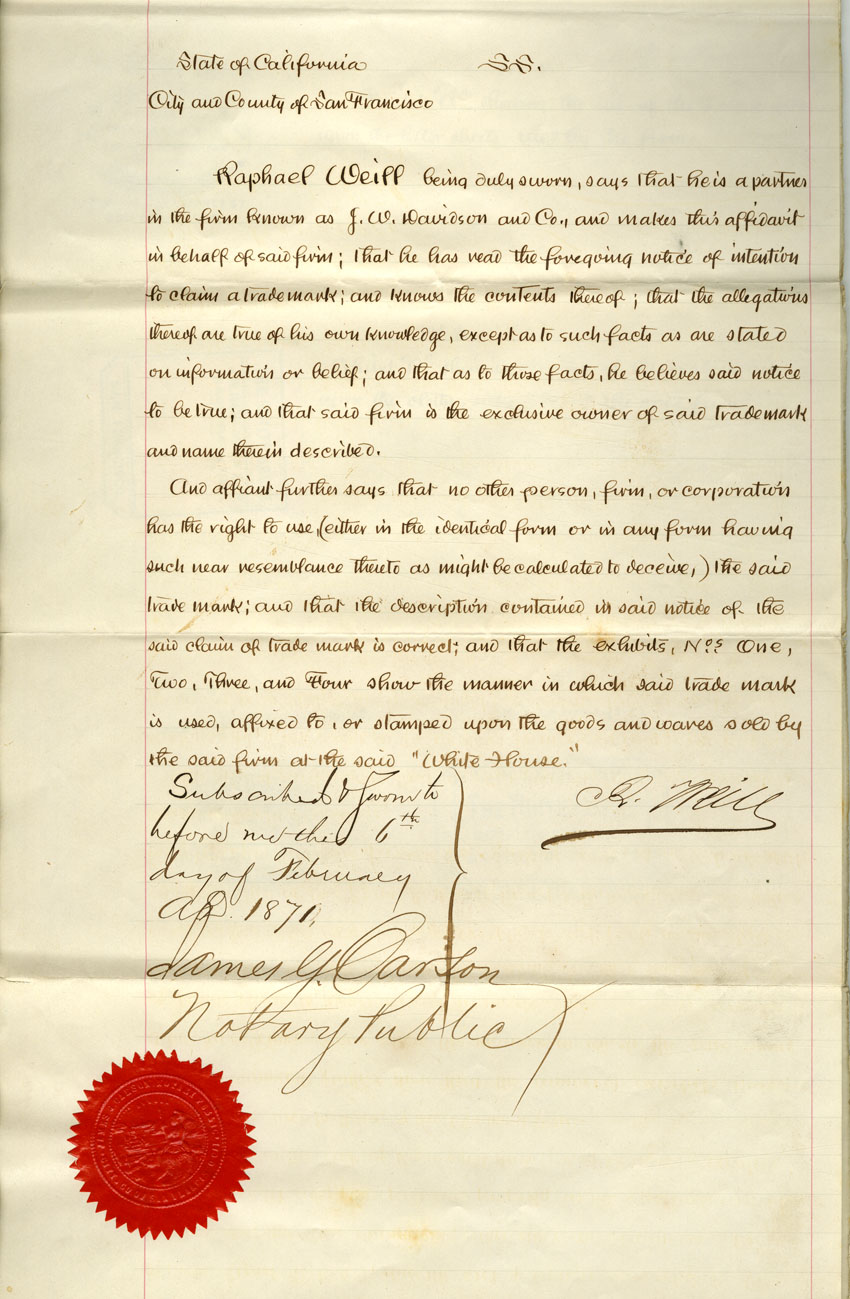 State of California SS.
City and County of San Francisco
Raphael Weill being duly sworn, says that he is a partner
in the firm known as J. W. Davidson and Co., and makes this affidavit
in behalf of said firm; that he has read the foregoing notice of intention
to claim a trade mark; and knows the contents thereof; that the allegations
thereof are true of his own knowledge, except as to such facts as are stated
on information or belief; and that as to those facts, he believes said notice
to be true; and that said firm is the exclusive owner of said trade mark
and name therein described.
And affiant further says that no other person, firm, or corporation
has the right to use, (either in the identical form or in any form having
such near resemblance thereto as might be calculated to deceive,) the said
trade mark; and that the description contained in said notice of the
said claim of trade mark is correct; and that the exhibits, Nos One,
Two, Three, and Four show the manner in which said trade mark
is used, affixed to, or stamped upon the goods and wares sold by
the said firm at the said "White House."
Subscribed & Sworn to
before me this 6th
day of February
AD. 1871.
R. Weill
James G. Carson
Notary Public